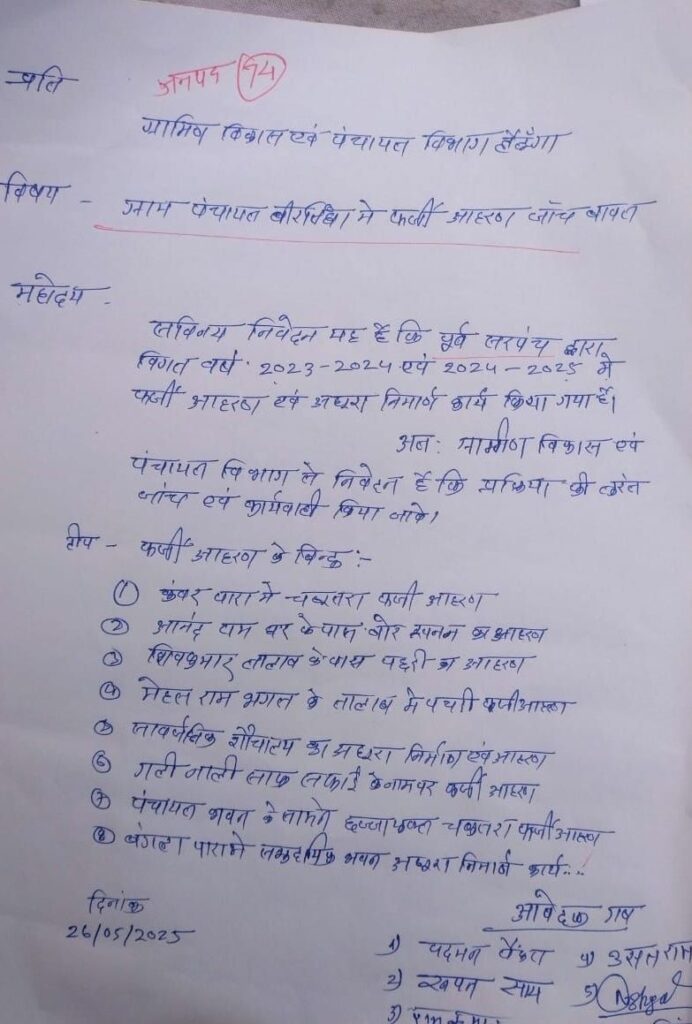 प्रति
जनपद 94
ग्रामिण विकास एवं पंचायत विभाग
विषय - ग्राम पंचायत में फर्जी आहरण जाँच बावत
महोदय -
सविनय निवेदन यह है कि पूर्व सरपंच द्वारा
विगत वर्ष 2023-2024 एवं 2024-2025 में
फर्जी आहरण एवं अधूरा निमार्ण कार्य किया गया है।
अतः ग्रामीण विकास एवं
पंचायत विभाग से निवेदन है कि प्रक्रिया की तुरंत
जांच एवं कार्यवाही किया जावे।
टीप - फर्जी आहरण के बिन्दु :-
① कंवर पारा मे चबूतरा फर्जी आहरण
② आनंद राम घर के पास बोर खनन का आहरण
③ शिवकुमार तालाब के पास का आहरण
④ राम भगत के तालाब मे पचरी फर्जी आहरण
⑤ सार्वजनिक शौचालय का अधूरा निर्माण एवं आहरण
⑥ गली नाली साफ सफाई के नाम पर फर्जी आहरण
⑦ पंचायत भवन के सामने छज्जा चबूतरा फर्जी आहरण
⑧ बंगला पारा मे सामुदायिक भवन अधूरा निमार्ण कार्य...
दिनांक
26/05/2025
आवेदक गण
1) पदमन
4)
2) साय
5)
3)